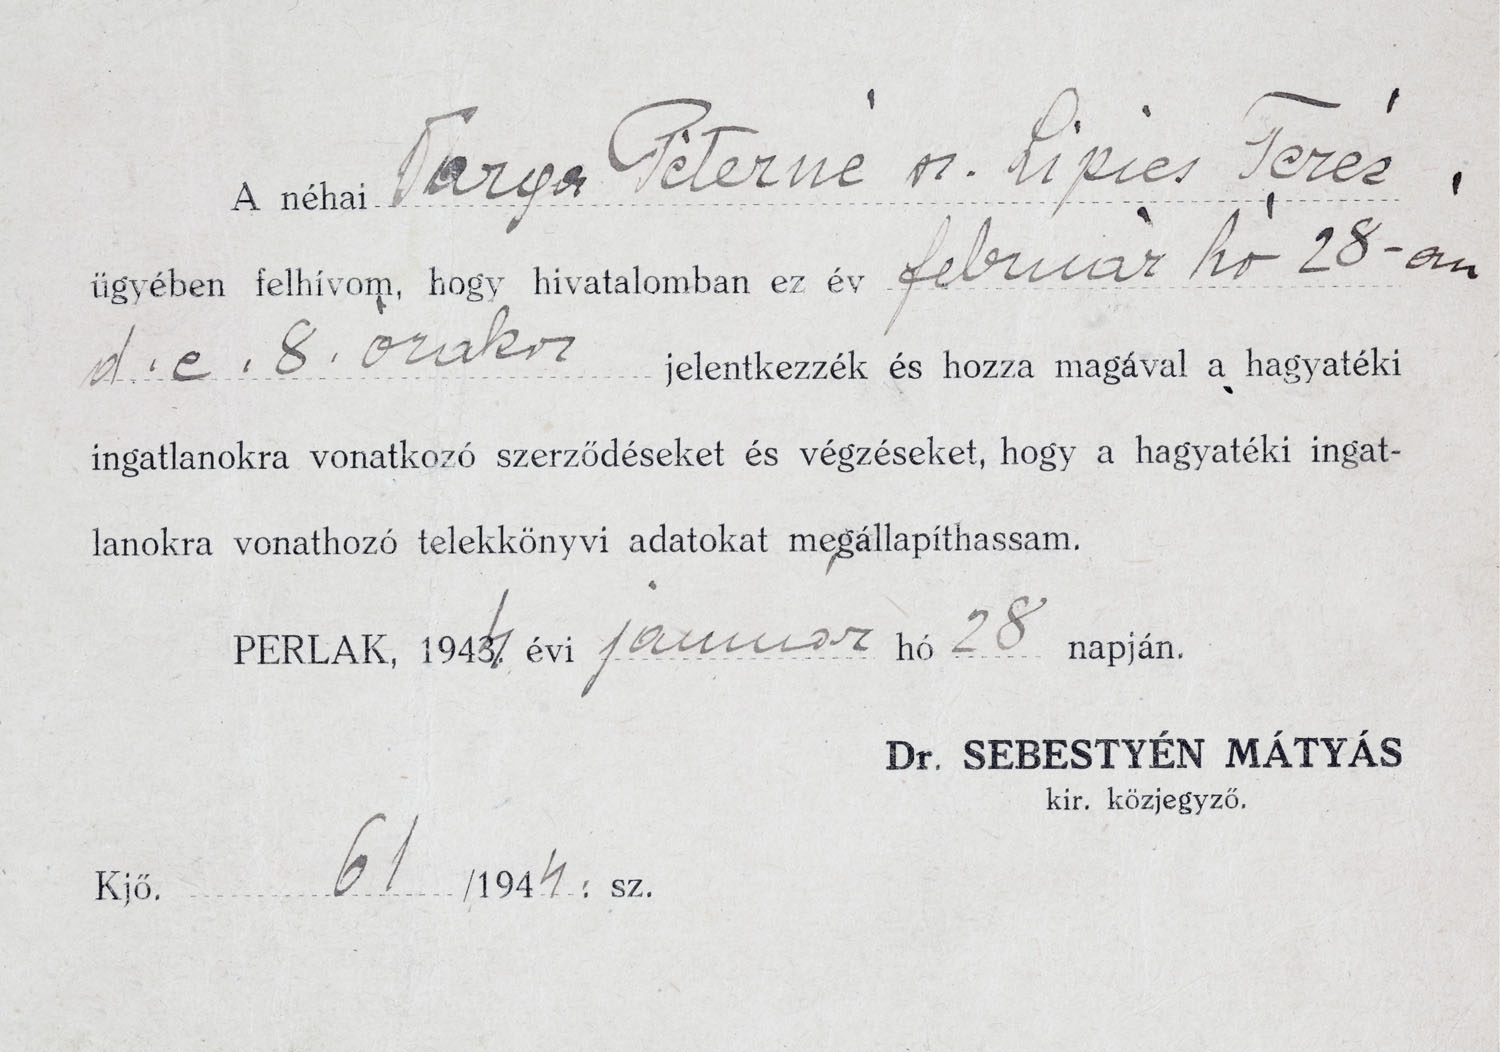 A néhai Varga Péterné sz. Lipics Teréz
ügyében felhívom, hogy hivatalomban ez év február hó 28-án
d. e. 8. órakor jelentkezzék és hozza magával a hagyatéki
ingatlanokra vonatkozó szerződéseket és végzéseket, hogy a hagyatéki ingat-
lanokra vonathozó telekkönyvi adatokat megállapíthassam.
PERLAK, 1944. évi januar hó 28 napján.
Dr. SEBESTYÉN MÁTYÁS
kir. közjegyző.
Kjő. 61 /1944. sz.